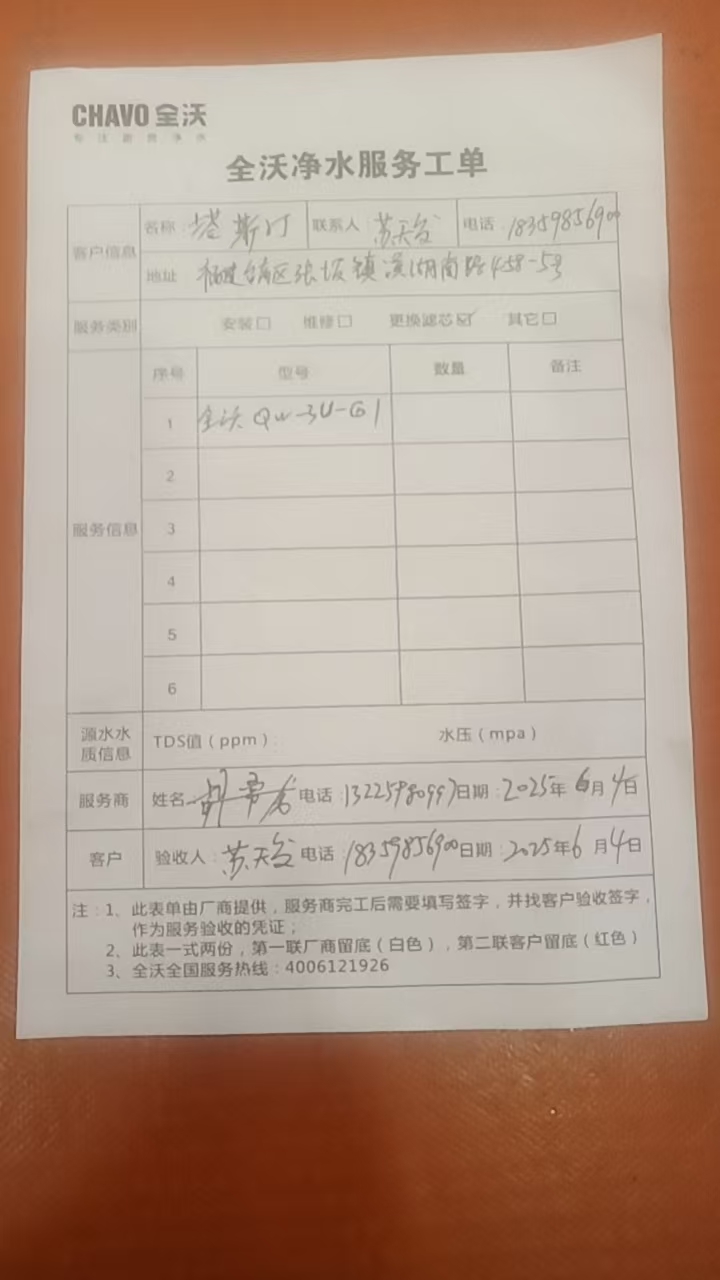 CHAVO 全沃
专注商用净水
全沃净水服务工单
客户信息 名称：塔斯汀 联系人 苏天谷 电话：18359856900
地址 福建台商区张坂镇滨湖南路458-5号
服务类别 安装□ 维修□ 更换滤芯☑ 其它□
服务信息 序号 型号 数量 备注
1 全沃 QW-3U-G1
2
3
4
5
6
源水水质信息 TDS值（ppm）： 水压（mpa）
服务商 姓名： 电话：13225980997 日期：2025年6月4日
客户 验收人：苏天谷 电话：18359856900 日期：2025年6月4日
注：1、此表单由厂商提供，服务商完工后需要填写签字，并找客户验收签字，
作为服务验收的凭证；
2、此表一式两份，第一联厂商留底（白色），第二联客户留底（红色）
3、全沃全国服务热线：4006121926